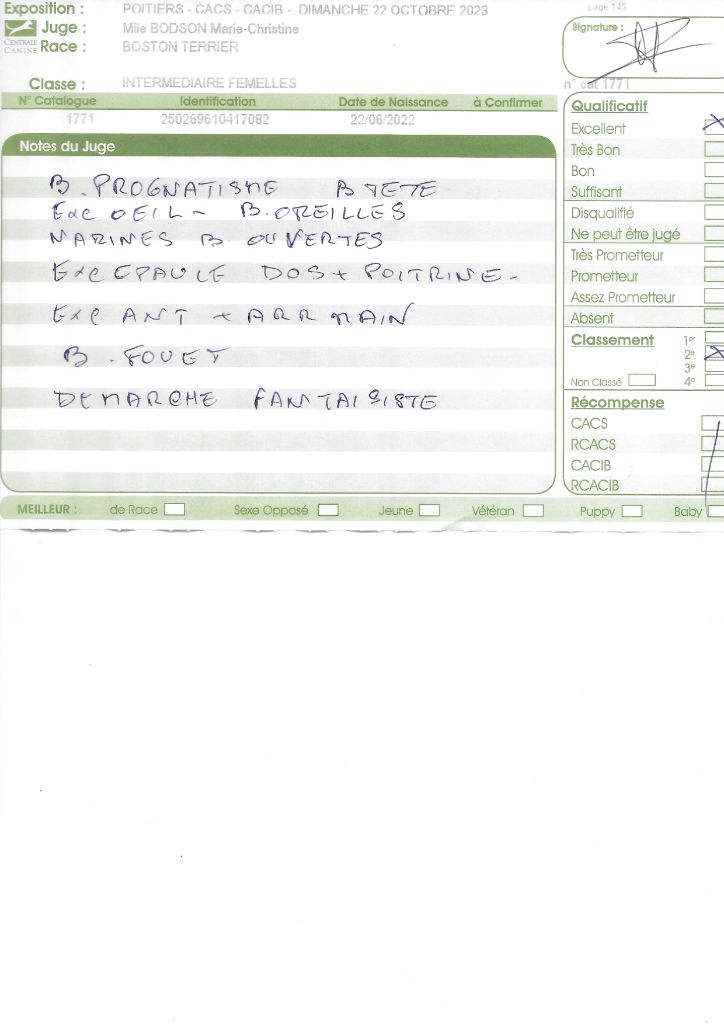 Exposition : POITIERS - CACS - CACIB - DIMANCHE 22 OCTOBRE 2023
page 143
Juge : Mlle BODSON Marie-Christine
Signature :
CENTRALE CANINE
Race : BOSTON TERRIER
Classe : INTERMEDIAIRE FEMELLES
n° cat 1771
N° Catalogue Identification Date de Naissance à Confirmer
1771 250269610417082 22/06/2022
Notes du Juge
B. PROGNATISME B TETE
Exc OEIL - B. OREILLES
NARINES B. OUVERTES
Exc EPAULE DOS + POITRINE -
Exc ANT + ARR MAIN
B. FOUET
DEMARCHE FANTAISISTE
Qualificatif
Excellent
Très Bon
Bon
Suffisant
Disqualifié
Ne peut être jugé
Très Prometteur
Prometteur
Assez Prometteur
Absent
Classement 1er
2e
3e
Non Classé 4e
Récompense
CACS
RCACS
CACIB
RCACIB
MEILLEUR : de Race Sexe Opposé Jeune Vétéran Puppy Baby